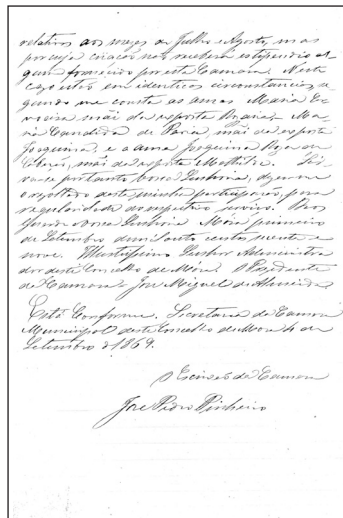 relativos aos mezes de Julho e Agosto, mas
por cuja criação nao recebera estipendio al-
gum fornecido por esta Camara. Neste
cazo estão em identicas circunstancias, se-
gundo me consta as amas Maria
mãi da exposta Maria, Ma-
ria Candida de Paria, mãi da exposta
Joaquina, e a ama Joaquina Roza do
mãi da exposta Mathilde.
portanto Vossa Senhoria, dizer me
o resultado desta minha participação, para
regularidade do respectivo serviço. Deos
Guarde a Vossa Senhoria Móra primeiro
de Setembro de mil oito centos secenta e
nove. Illustrissimo Senhor Administra
dor deste Concelho de Móra. O Prezidente
da Camara. José Miguel de Almeida.
Está Conforme. Secretaria da Camara
Municipal deste Concelho de Mora 4 de
Setembro de 1869.
O Escrivão da Camara
José Pedro Pinheiro